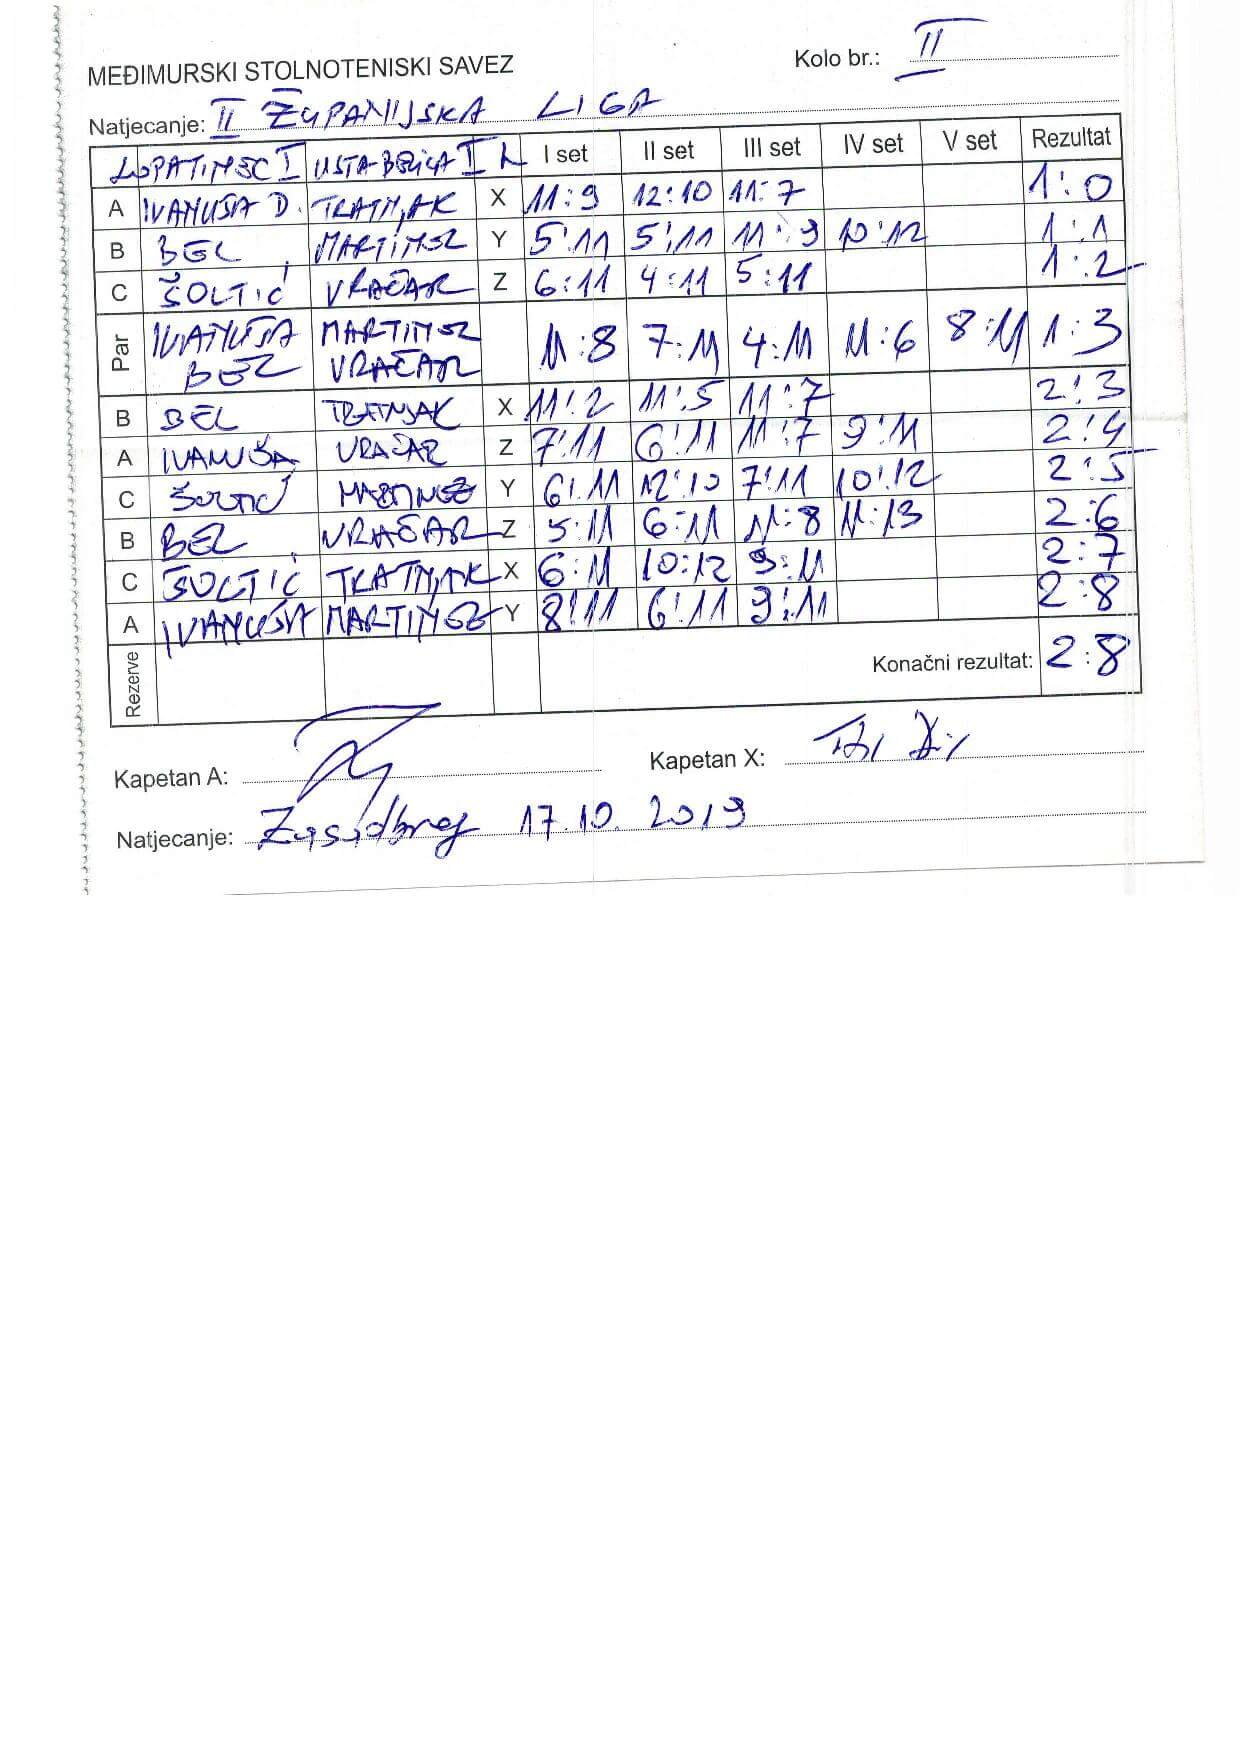 MEĐIMURSKI STOLNOTENISKI SAVEZ
Kolo br.: II
Natjecanje: II ŽUPANIJSKA LIGA
LOPATINEC I I set II set III set IV set V set Rezultat
A IVANUŠA D. TRATNJAK X 11:9 12:10 11:7 1:0
B BEL MARTINEZ Y 5:11 5:11 11:9 10:12 1:1
C ŠOLTIĆ VRAČAR Z 6:11 4:11 5:11 1:2
Par IVANUŠA BEL MARTINEZ VRAČAR 11:8 7:11 4:11 11:6 8:11 1:3
B BEL TRATNJAK X 11:2 11:5 11:7 2:3
A IVANUŠA VRAČAR Z 7:11 6:11 11:7 9:11 2:4
C ŠOLTIĆ MARTINEZ Y 6:11 12:10 7:11 10:12 2:5
B BEL VRAČAR Z 5:11 6:11 11:8 11:13 2:6
C ŠOLTIĆ TRATNJAK X 6:11 10:12 9:11 2:7
A IVANUŠA MARTINEZ Y 8:11 6:11 9:11 2:8
Rezerve Konačni rezultat: 2:8
Kapetan A: Kapetan X:
Natjecanje: Zasadbreg 17.10.2019